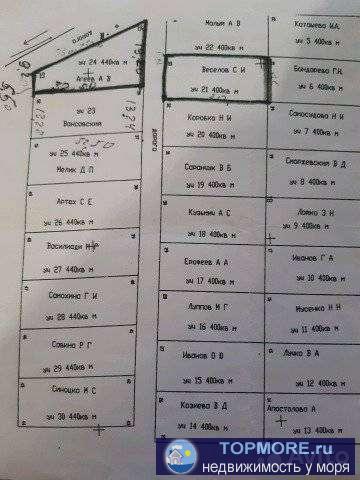 уч 24 440кв м
Агеев А В
уч 23
Вансовский
уч 25 440кв м
Мелик Д П
Артах С Е
уч 26 440кв м
Василиади М Р
уч 27 440кв м
Самохина Г И
уч 28 440кв м
Савина Р Г
уч 29 440кв м
Синюшко М С
уч 30 440кв м
дорого
Малыя А В
уч 22 400кв м
Веселов С И
уч 21 400кв м
Коробко Н И
уч 20 400кв м
Саранчак В Б
уч 19 400кв м
Кузьмин А С
уч 18 400кв м
Ерофеев А А
уч 17 400кв м
Луппов М Г
уч 16 400кв м
Иванов О Ю
уч 15 400кв м
Козиева В Д
уч 14 400кв м
уч 5 400кв м
Бондарева Г.Н.
уч 6 400кв м
Самосидова Н И
уч 7 400кв м
уч 8 400кв м
уч 9 400кв м
Иванов Г А
уч 10 400кв м
Мусенко Н Н
уч 11 400кв м
Личко В А
уч 12 400кв м
Апостолова А
уч 13 400кв м
TOPMORE.ru
недвижимость у моря
Avito